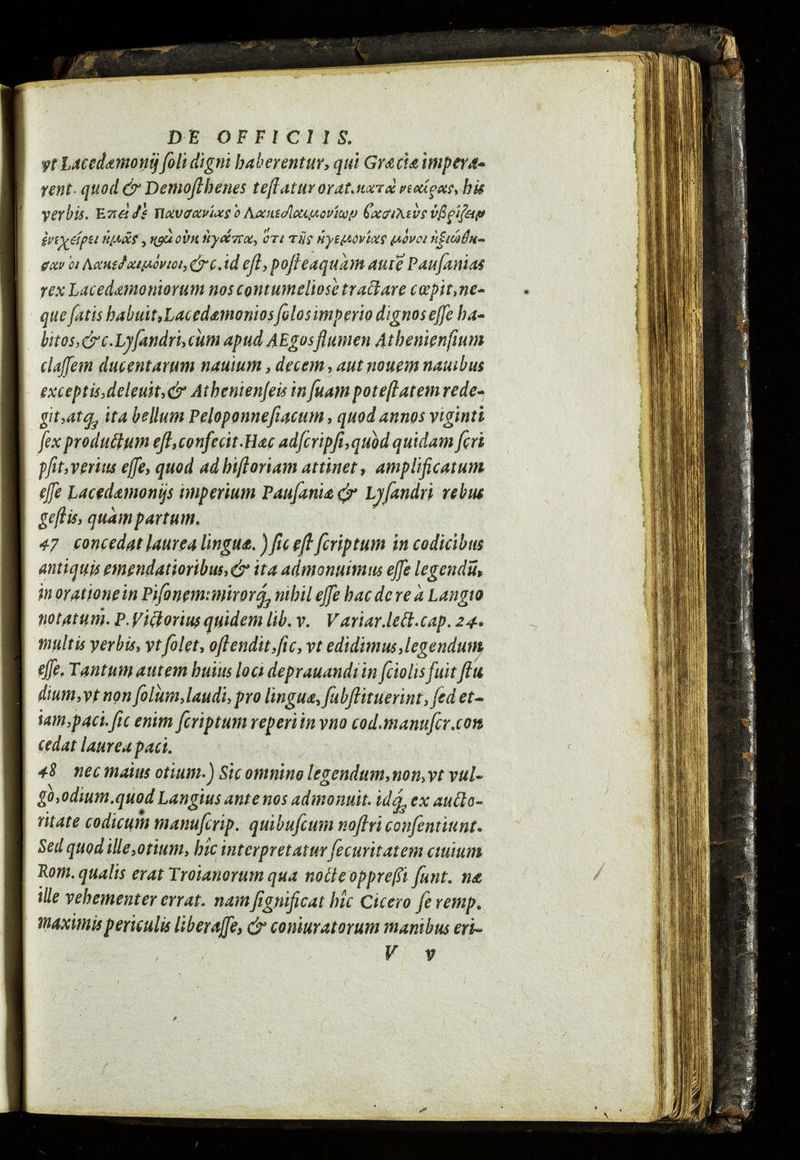 DE OFFICIIS.
vt Lacedæmonij soli digni haberentur, qui Græciæ impera-
rent. quod & Demosthenes testatur orat. κατὰ νεαίρας, his
verbis. Ἐπεὶ δὲ Παυσανίας ὁ Λακεδαιμονίων βασιλεὺς ὑβρίζειν
ἐνεχείρει ἡμᾶς, καὶ οὐκ ἠγάπα, ὅτι τῆς ἡγεμονίας μόνοι ἠξιώθη-
σαν οἱ Λακεδαιμόνιοι, &c. id est, posteaquàm autẽ Pausanias
rex Lacedæmoniorum nos contumeliosè tractare cœpit, ne-
que satis habuit, Lacedæmonios solos imperio dignos esse ha-
bitos, &c. Lysandri, cùm apud AEgos flumen Atheniensium
classem ducentarum nauium, decem, aut nouem nauibus
exceptis, deleuit, & Athenienseis in suam potestatem rede-
git, atq́; ita bellum Peloponnesiacum, quod annos viginti
sex productum est, confecit. Hæc adscripsi, quòd quidam scri
psit, verius esse, quod ad historiam attinet, amplificatum
esse Lacedæmonijs imperium Pausaniæ & Lysandri rebus
gestis, quàm partum.
47 concedat laurea linguæ. ) sic est scriptum in codicibus
antiquis emendatioribus, & ita admonuimus esse legendũ,
in oratione in Pisonem: mirorq́; nihil esse hac de re à Langio
notatum. P. Victorius quidem lib. v. Variar. lect. cap. 24.
multis verbis, vt solet, ostendit, sic, vt edidimus, legendum
esse. Tantum autem huius loci deprauandi in sciolis fuit stu
dium, vt non solùm, laudi, pro linguæ, substituerint, sed et-
iam, paci. sic enim scriptum reperi in vno cod. manuscr. con
cedat laurea paci.
48 nec maius otium. ) Sic omnino legendum, non, vt vul-
gò, odium. quod Langius ante nos admonuit. idq́; ex aucto-
ritate codicum manuscrip. quibuscum nostri consentiunt.
Sed quod ille, otium, hîc interpretatur securitatem ciuium
Rom. qualis erat Troianorum qua nocte oppressi sunt. næ
ille vehementer errat. nam significat hîc Cicero se remp.
maximis periculis liberasse, & coniuratorum manibus eri-
V v